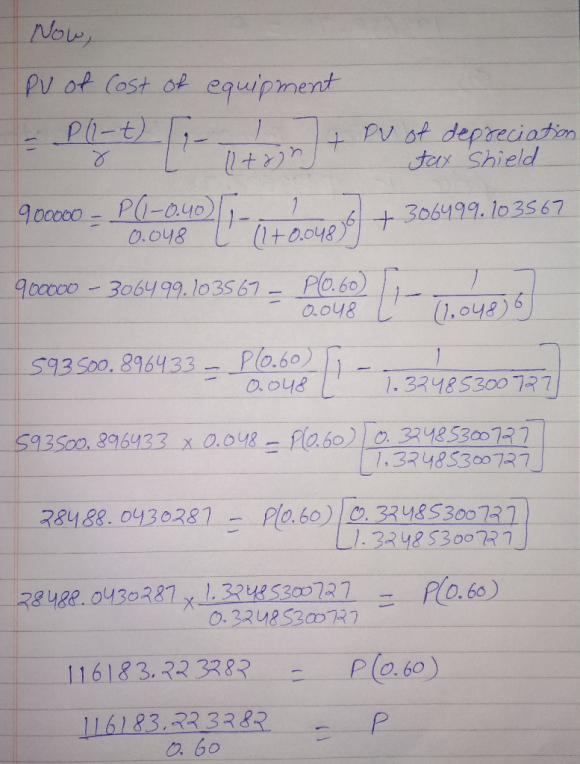 Now,
PV of Cost of equipment
= P(1-t)/r [1 - 1/(1+r)^n] + PV of depreciation tax Shield
900000 = P(1-0.40)/0.048 [1 - 1/(1+0.048)^6] + 306499.103567
900000 - 306499.103567 = P(0.60)/0.048 [1 - 1/(1.048)^6]
593500.896433 = P(0.60)/0.048 [1 - 1/1.32485300727]
593500.896433 x 0.048 = P(0.60) [0.32485300727/1.32485300727]
28488.0430287 = P(0.60) [0.32485300727/1.32485300727]
28488.0430287 x 1.32485300727/0.32485300727 = P(0.60)
116183.223282 = P(0.60)
116183.223282/0.60 = P